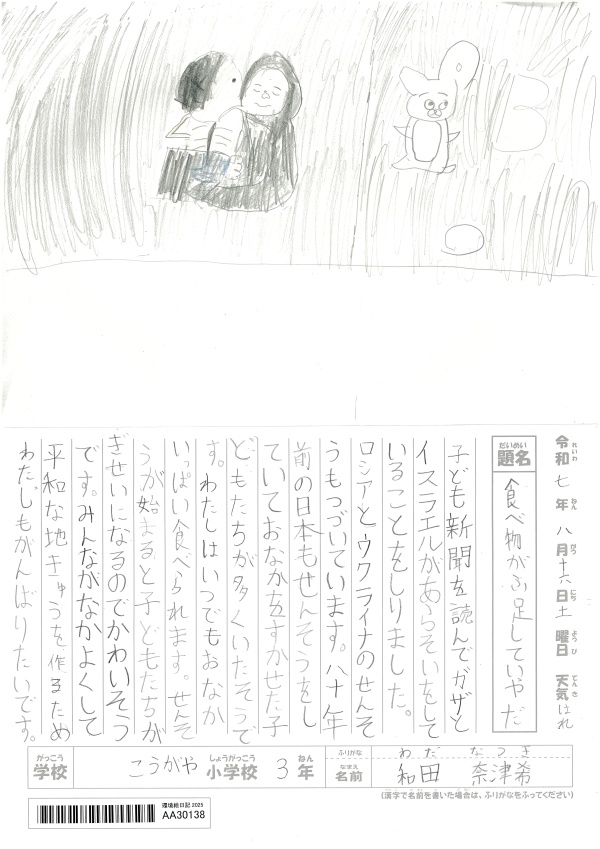 令和 七年 八月 十六日 土曜日 天気 はれ
れいわ ねん がつ にち ようび てんき
だいめい
題名 食べ物がふ足していやだ
子ども新聞を読んでガザと
イスラエルがあらそいをして
いることをしりました。
ロシアとウクライナのせんそ
うもつづいています。八十年
前の日本もせんそうをし
ていておなかをすかせた子
どもたちが多くいたそうで
す。わたしはいつでもおなか
いっぱい食べられます。せんそ
うが始まると子どもたちが
ぎせいになるのでかわいそう
です。みんながなかよくして
平和な地きゅうを作るため
わたしもがんばりたいです。
がっこう しょうがっこう ねん
学校 こうがや 小学校 3年
ふりがな わだ なつき
なまえ
名前 和田 奈津希
(漢字で名前を書いた場合は、ふりがなをふってください)
環境絵日記 2025
AA30138